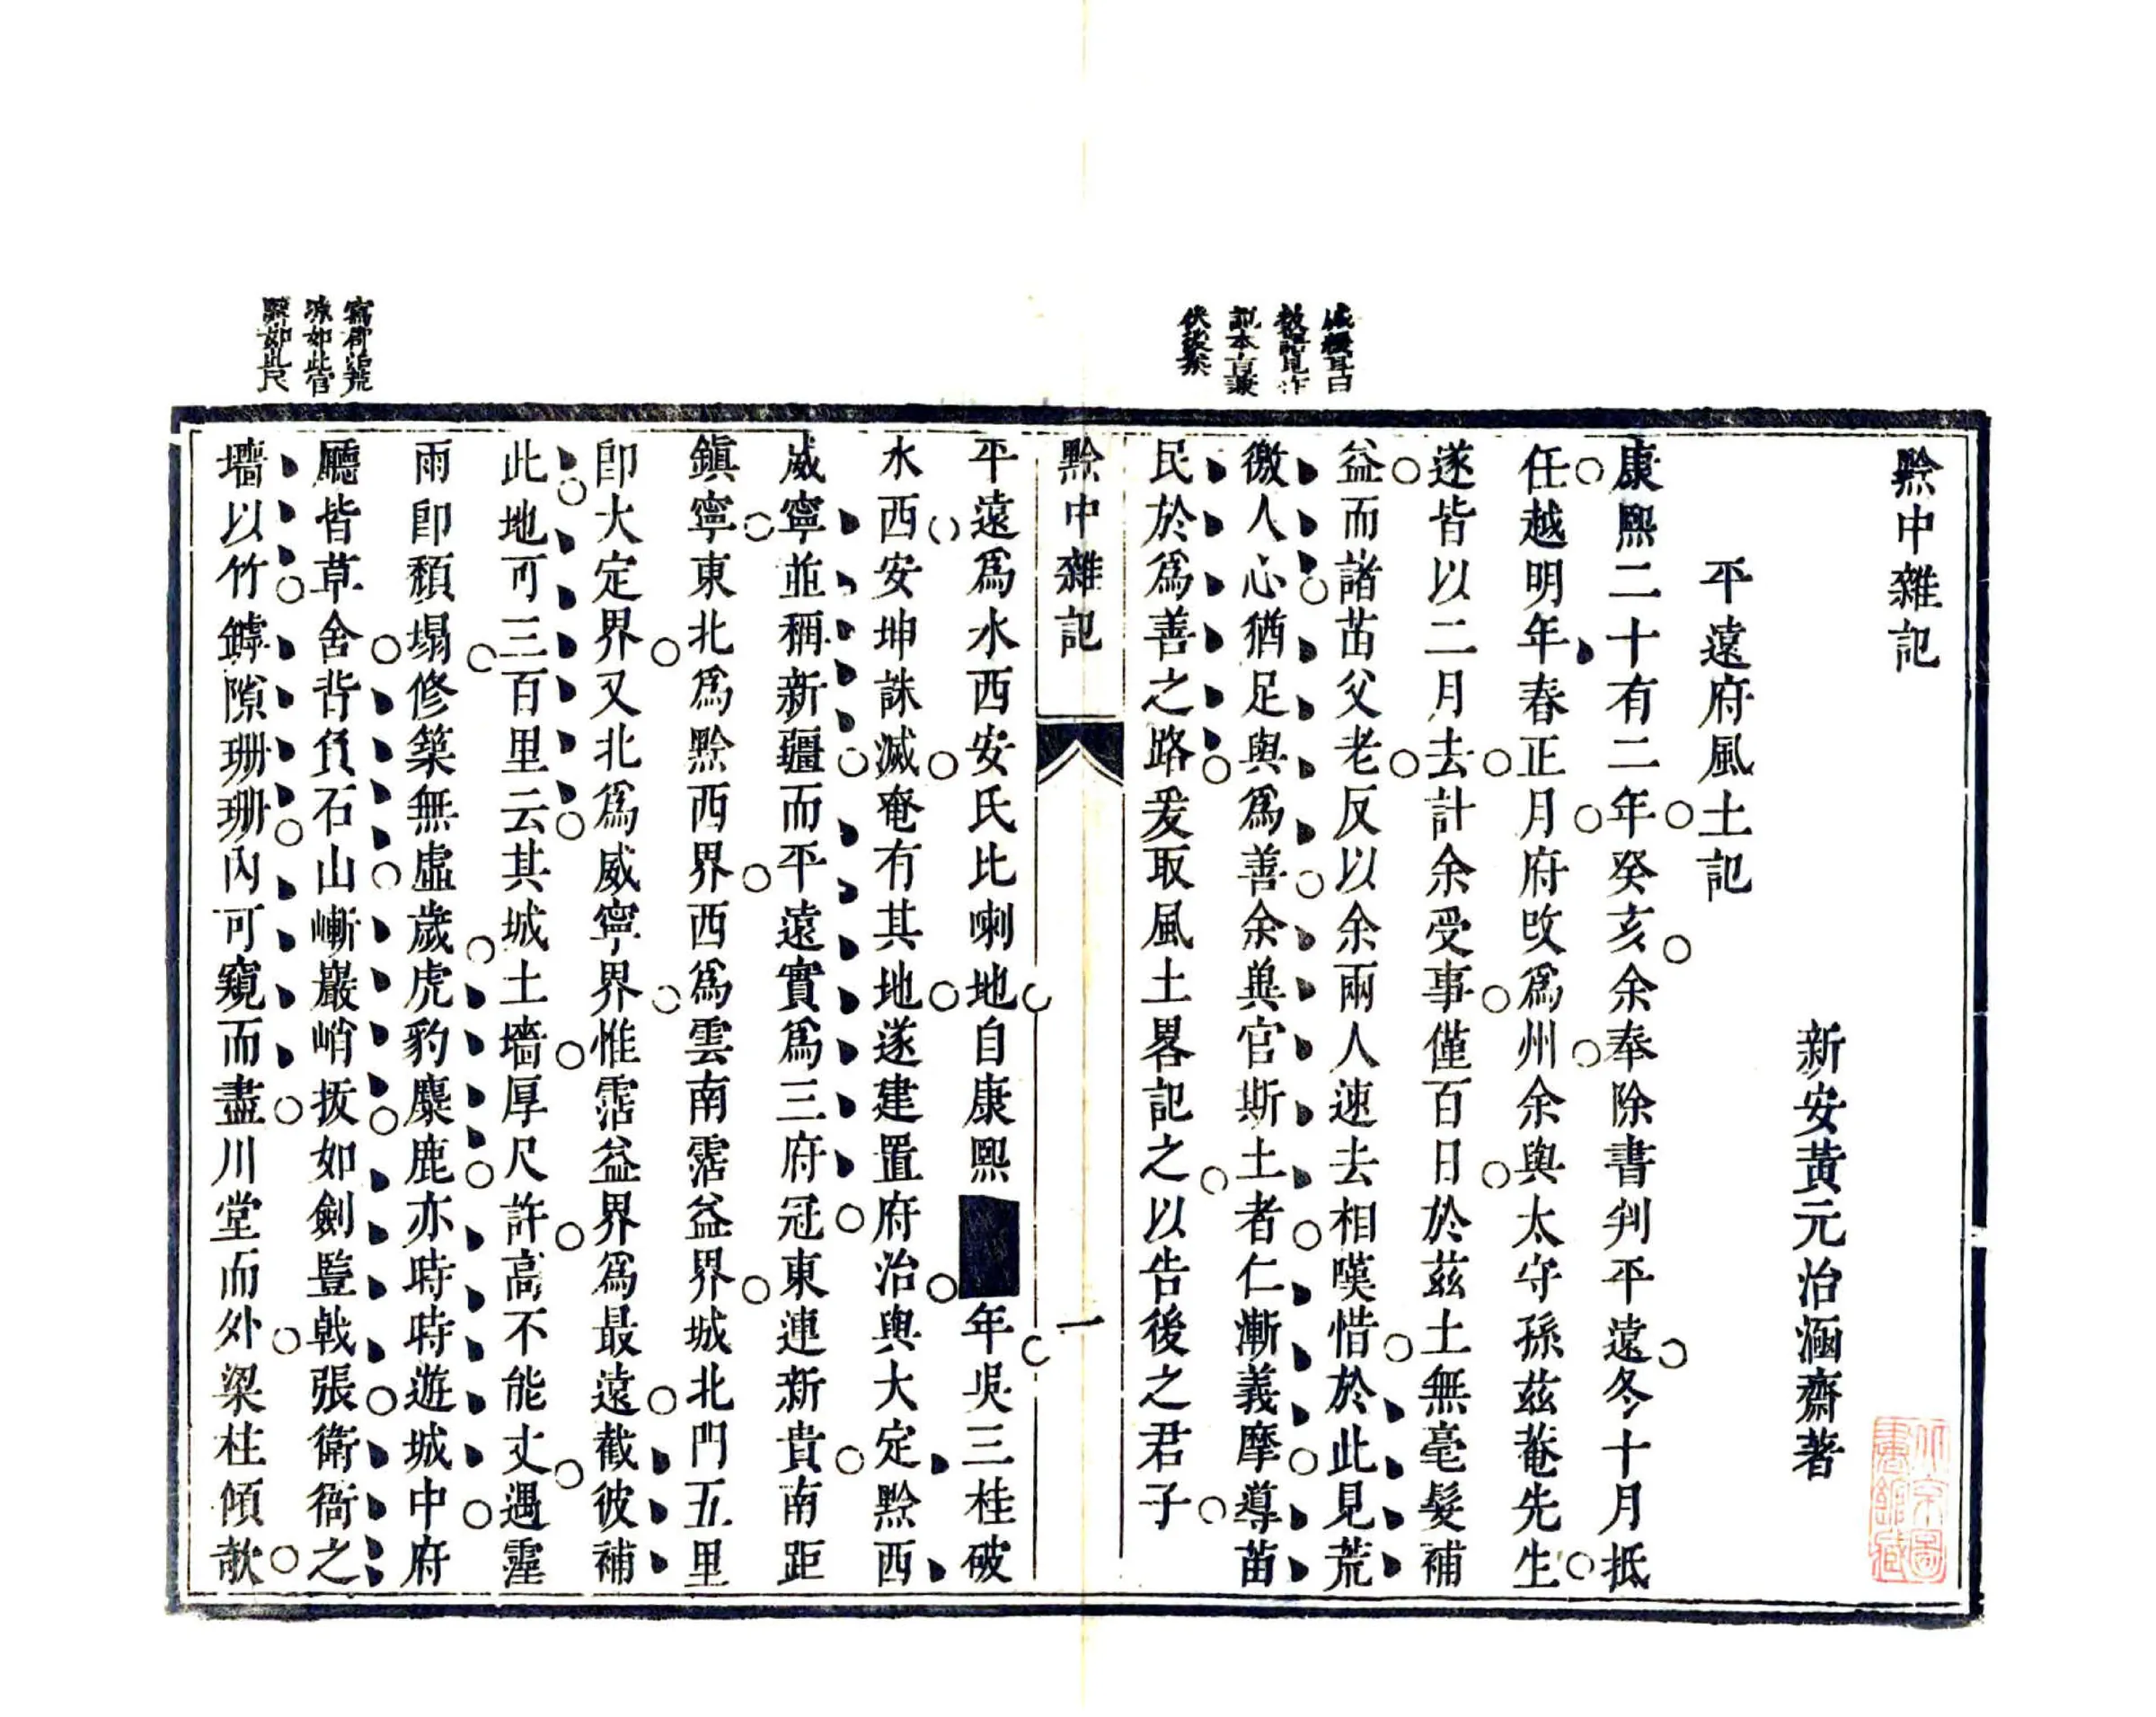 黔中雜記
新安黃元治涵齋著
平遠府風土記
康熙二十有二年癸亥余奉除書判平遠冬十月抵
任越明年春正月府改爲州余與太守孫茲菴先生
遂皆以二月去計余受事僅百日於茲土無毫髮補
益而諸苗父老反以余兩人速去相嘆惜於此見荒
徼人心猶足與爲善余與官斯土者仁漸義摩導苗
民於爲善之路爰取風土畧記之以告後之君子
黔中雜記
一
平遠爲水西安氏比喇地自康熙
年吳三桂破
水西安坤誅滅奄有其地遂建置府治與大定黔西
威寧並稱新疆而平遠實爲三府冠東連新貴南距
鎮寧東北爲黔西界西爲雲南霑益界城北門五里
卽大定界又北爲威寧界惟霑益界爲最遠截彼補
此地可三百里云其城土墻厚尺許高不能丈遇霪
雨卽頹塌修築無虛歲虎豹麋鹿亦時時遊城中府
廳皆草舍背負石山嶄巖峭拔如劍豎戟張衛衙之
墻以竹罅隙珊珊內可窺而盡川堂而外梁柱傾欹